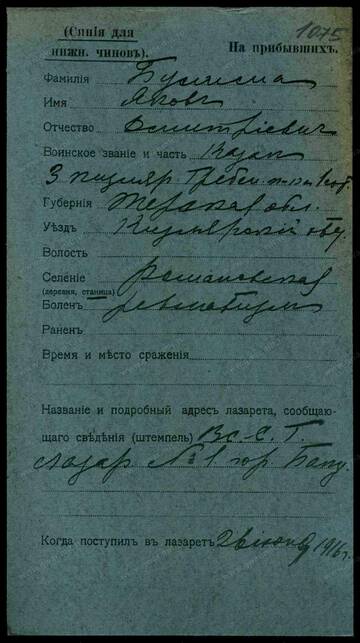 1075
(Синія для нижн. чиновъ).
На прибывшихъ.
Фамилія
Имя Яковъ
Отчество Дмитріевич
Воинское званіе и часть Казак
3 Кизляр Гребен.
Губернія Терская обл.
Уѣздъ Кизлярскій
Волость
Селеніе Романовская
(деревня, станица)
Боленъ ревматизм
Раненъ
Время и мѣсто сраженія
Названіе и подробный адресъ лазарета, сообщаю-
щаго свѣдѣнія (штемпель) В.С.Г.
лазар №1 гор Баку
Когда поступилъ въ лазаретъ 26 1916 г.